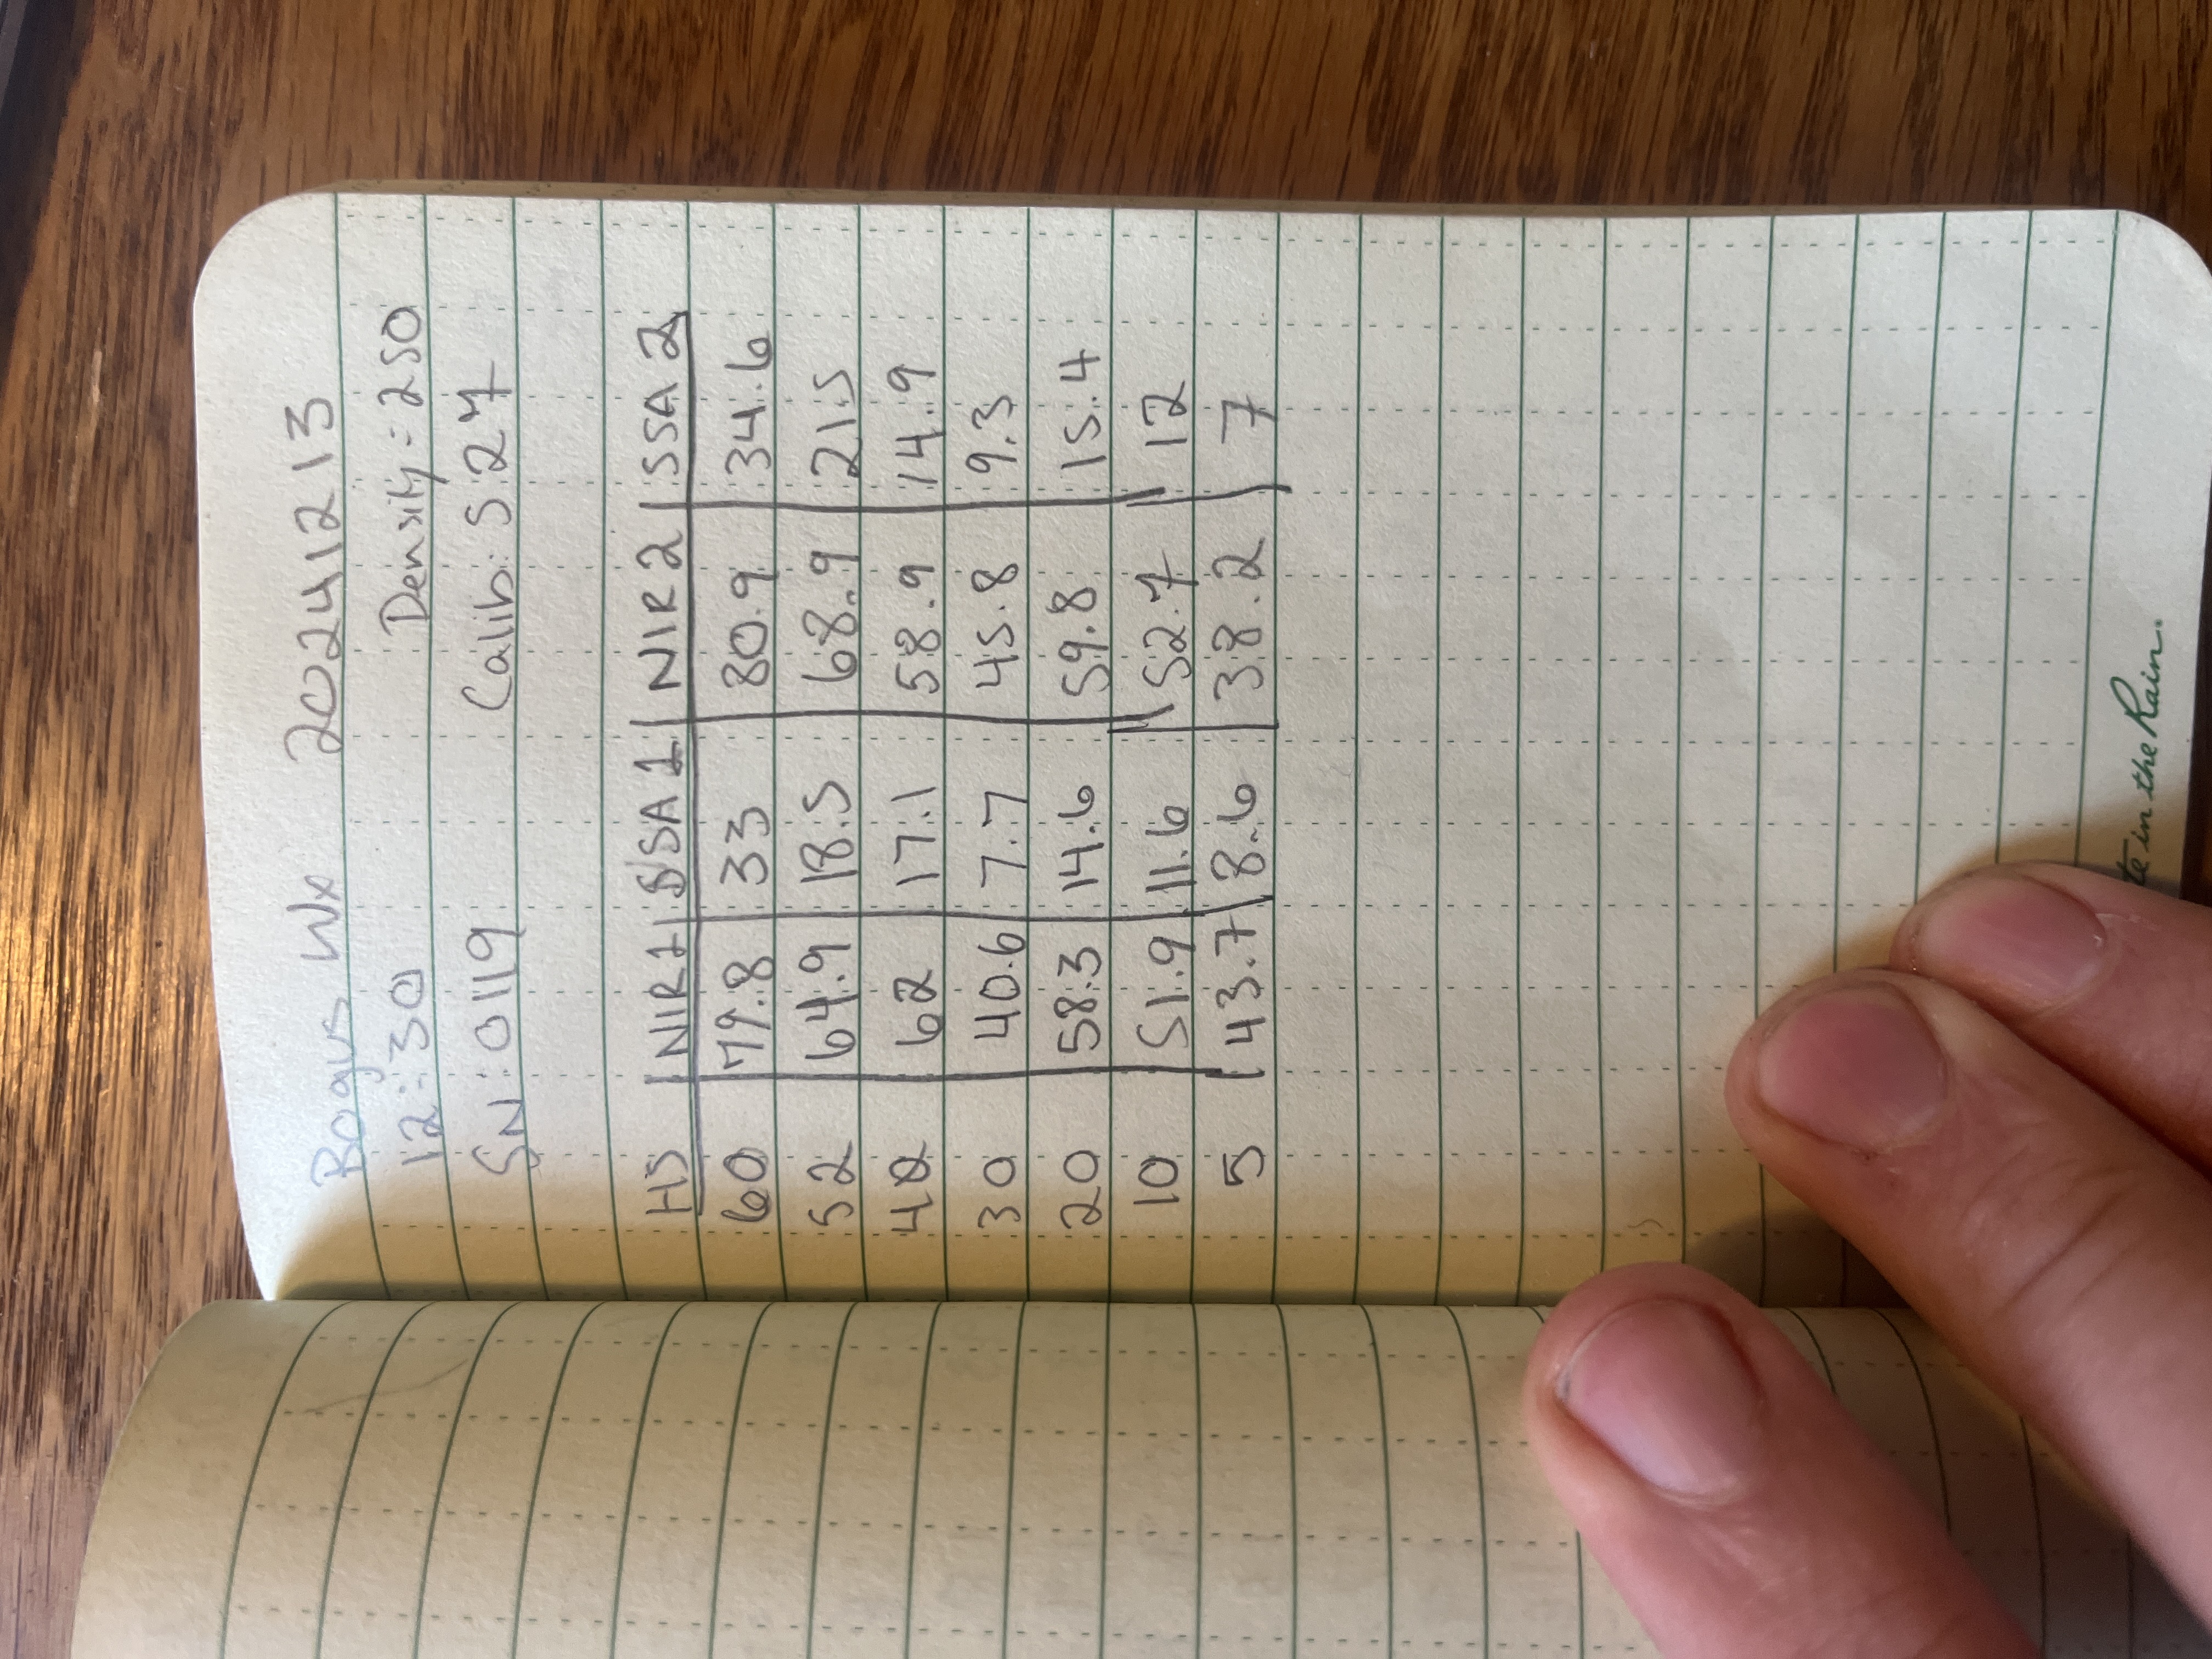 Bogus Wx 20241213
12:30 Density = 250
SN: 0119 Calib: S27
HS NIR1 SSA 1 NIR 2 SSA 2
60 79.8 33 80.9 34.6
52 64.9 18.5 68.9 21.5
40 62 17.1 58.9 14.9
30 40.6 7.7 45.8 9.3
20 58.3 14.6 59.8 15.4
10 51.9 11.6 52.7 12
5 43.7 8.6 38.2 7
in the Rain.